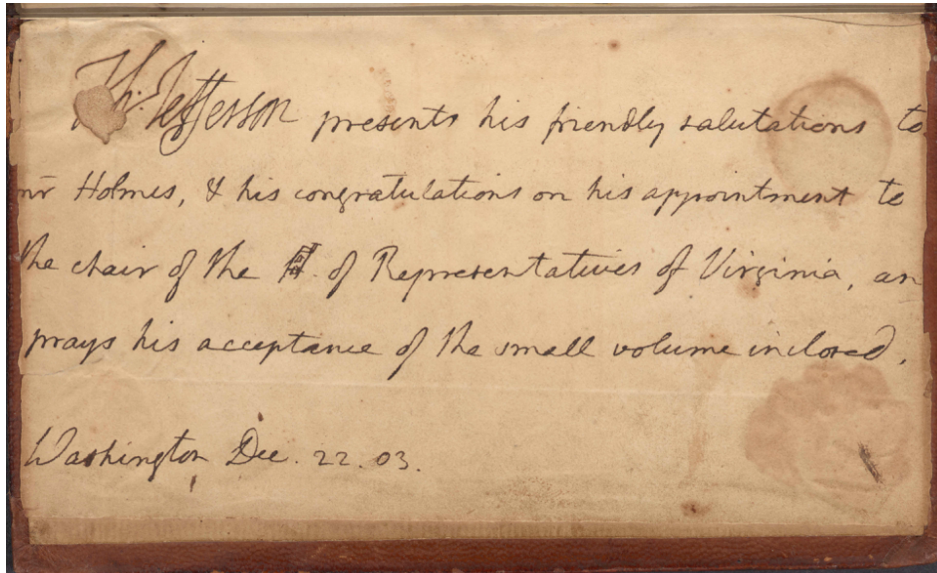 Th: Jefferson presents his friendly salutations to
mr Holmes, & his congratulations on his appointment to
the chair of the H. of Representatives of Virginia, an
prays his acceptance of the small volume inclosed.
Washington Dec. 22. 03.